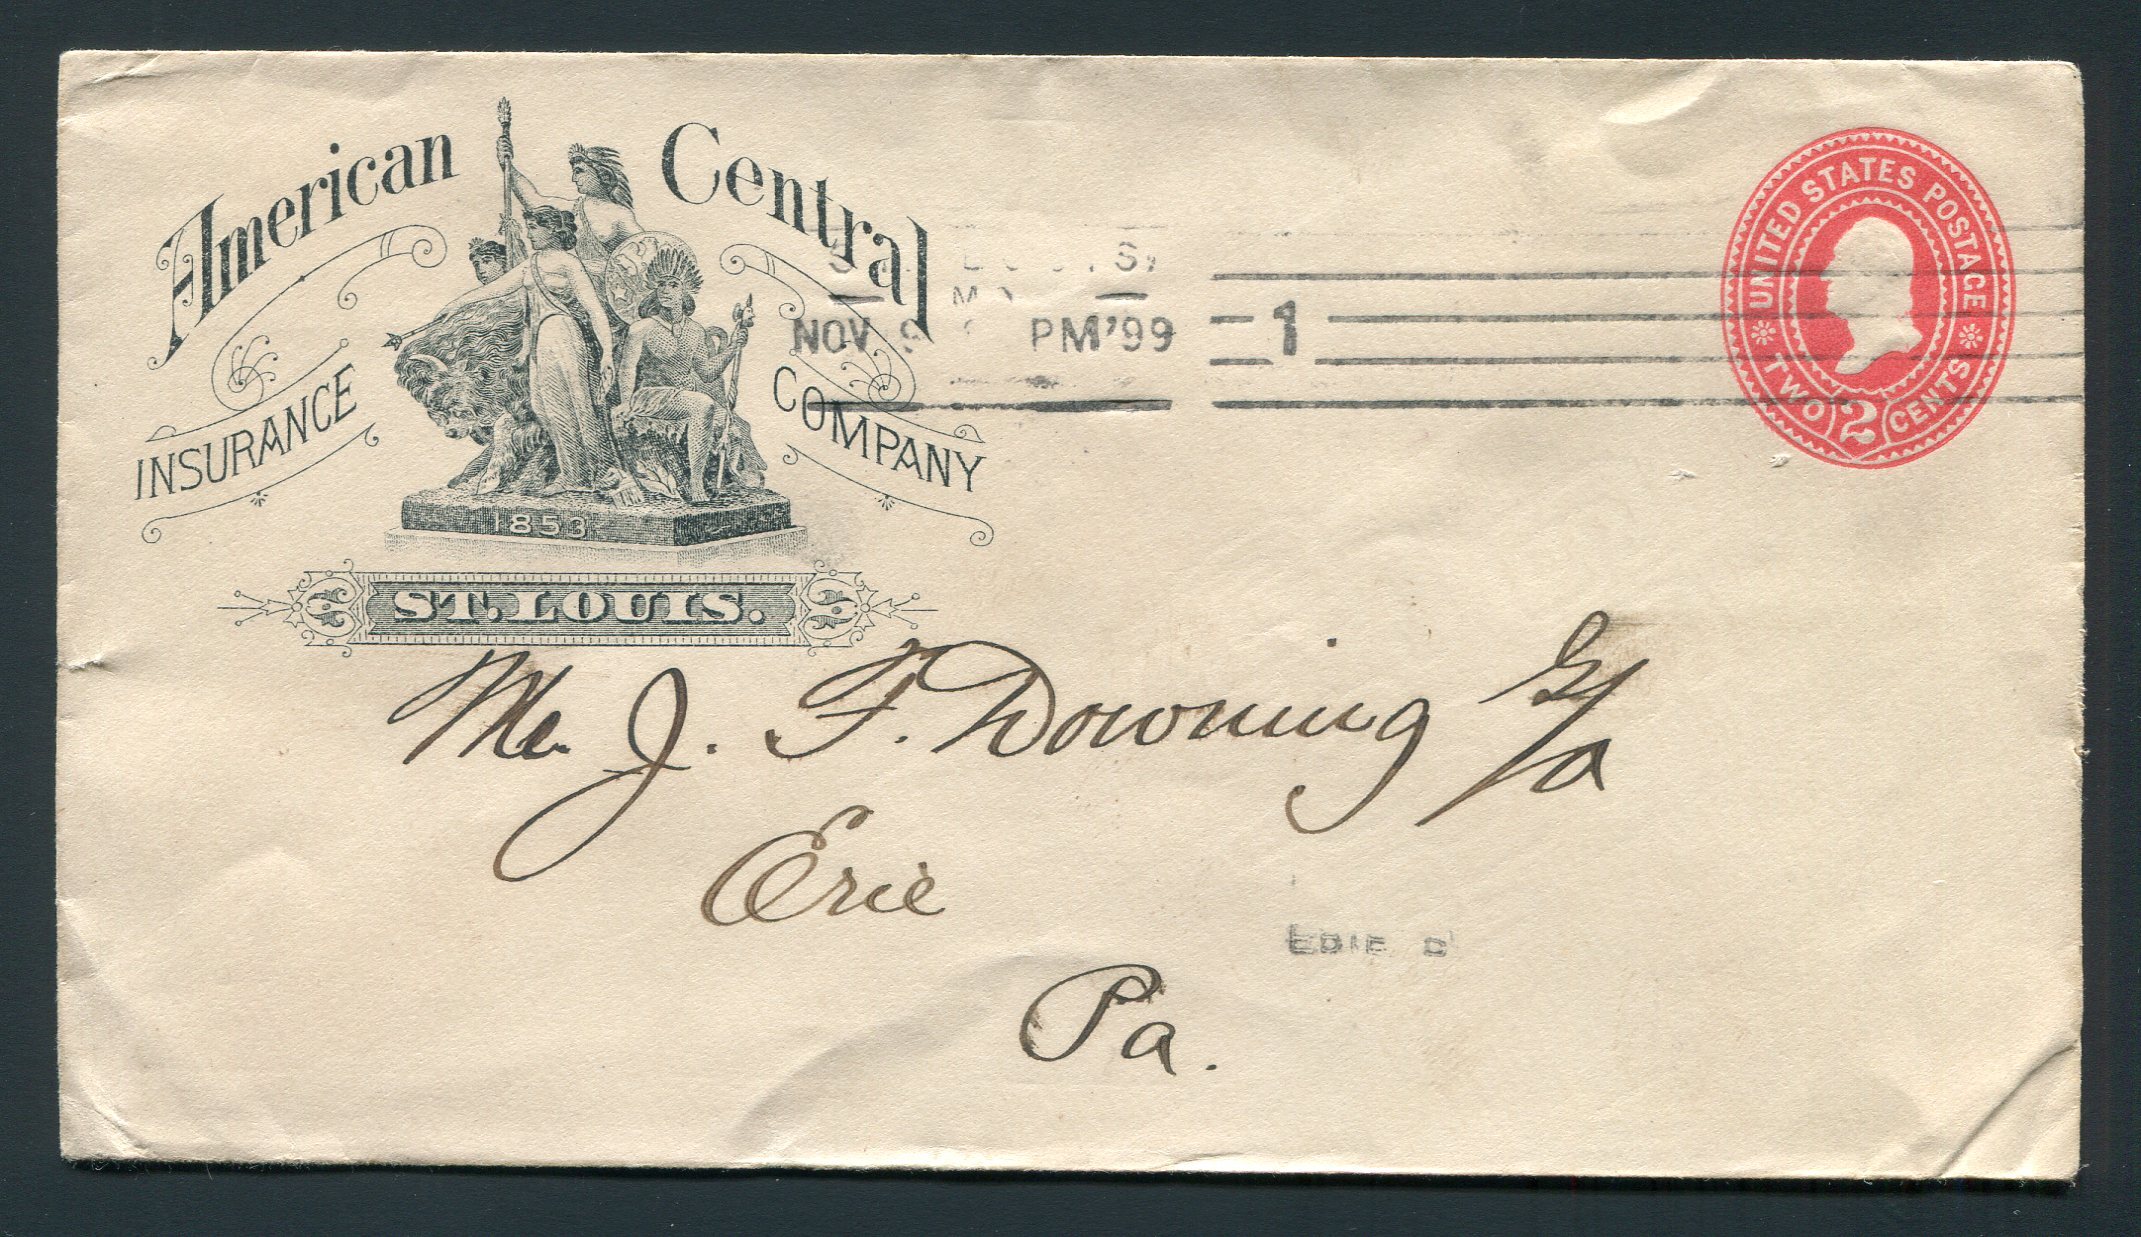 American Central
INSURANCE COMPANY
1853
ST. LOUIS.
NOV 9 PM '99 1
UNITED STATES POSTAGE
TWO 2 CENTS
Mr. J. F. Downing
Erie
Pa.